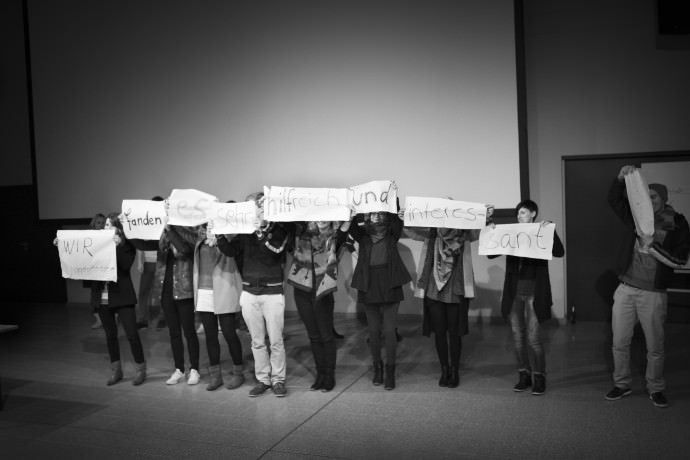 WIR
fanden
es
sehr
hilfreich
und
interes-
sant